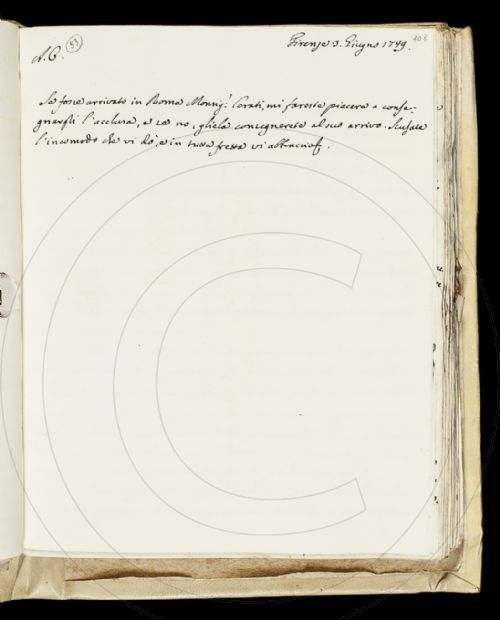 Firenze 3. Giugno 1779. 108
A. C. 53
Se fosse arrivato in Roma Monsig.r Corati, mi fareste piacere a conse-
gnargli l'acclusa, e se no, gliela consegnerete al suo arrivo. Scusate
l'incomodo che vi dò, e in tutta fretta vi abbraccio
C